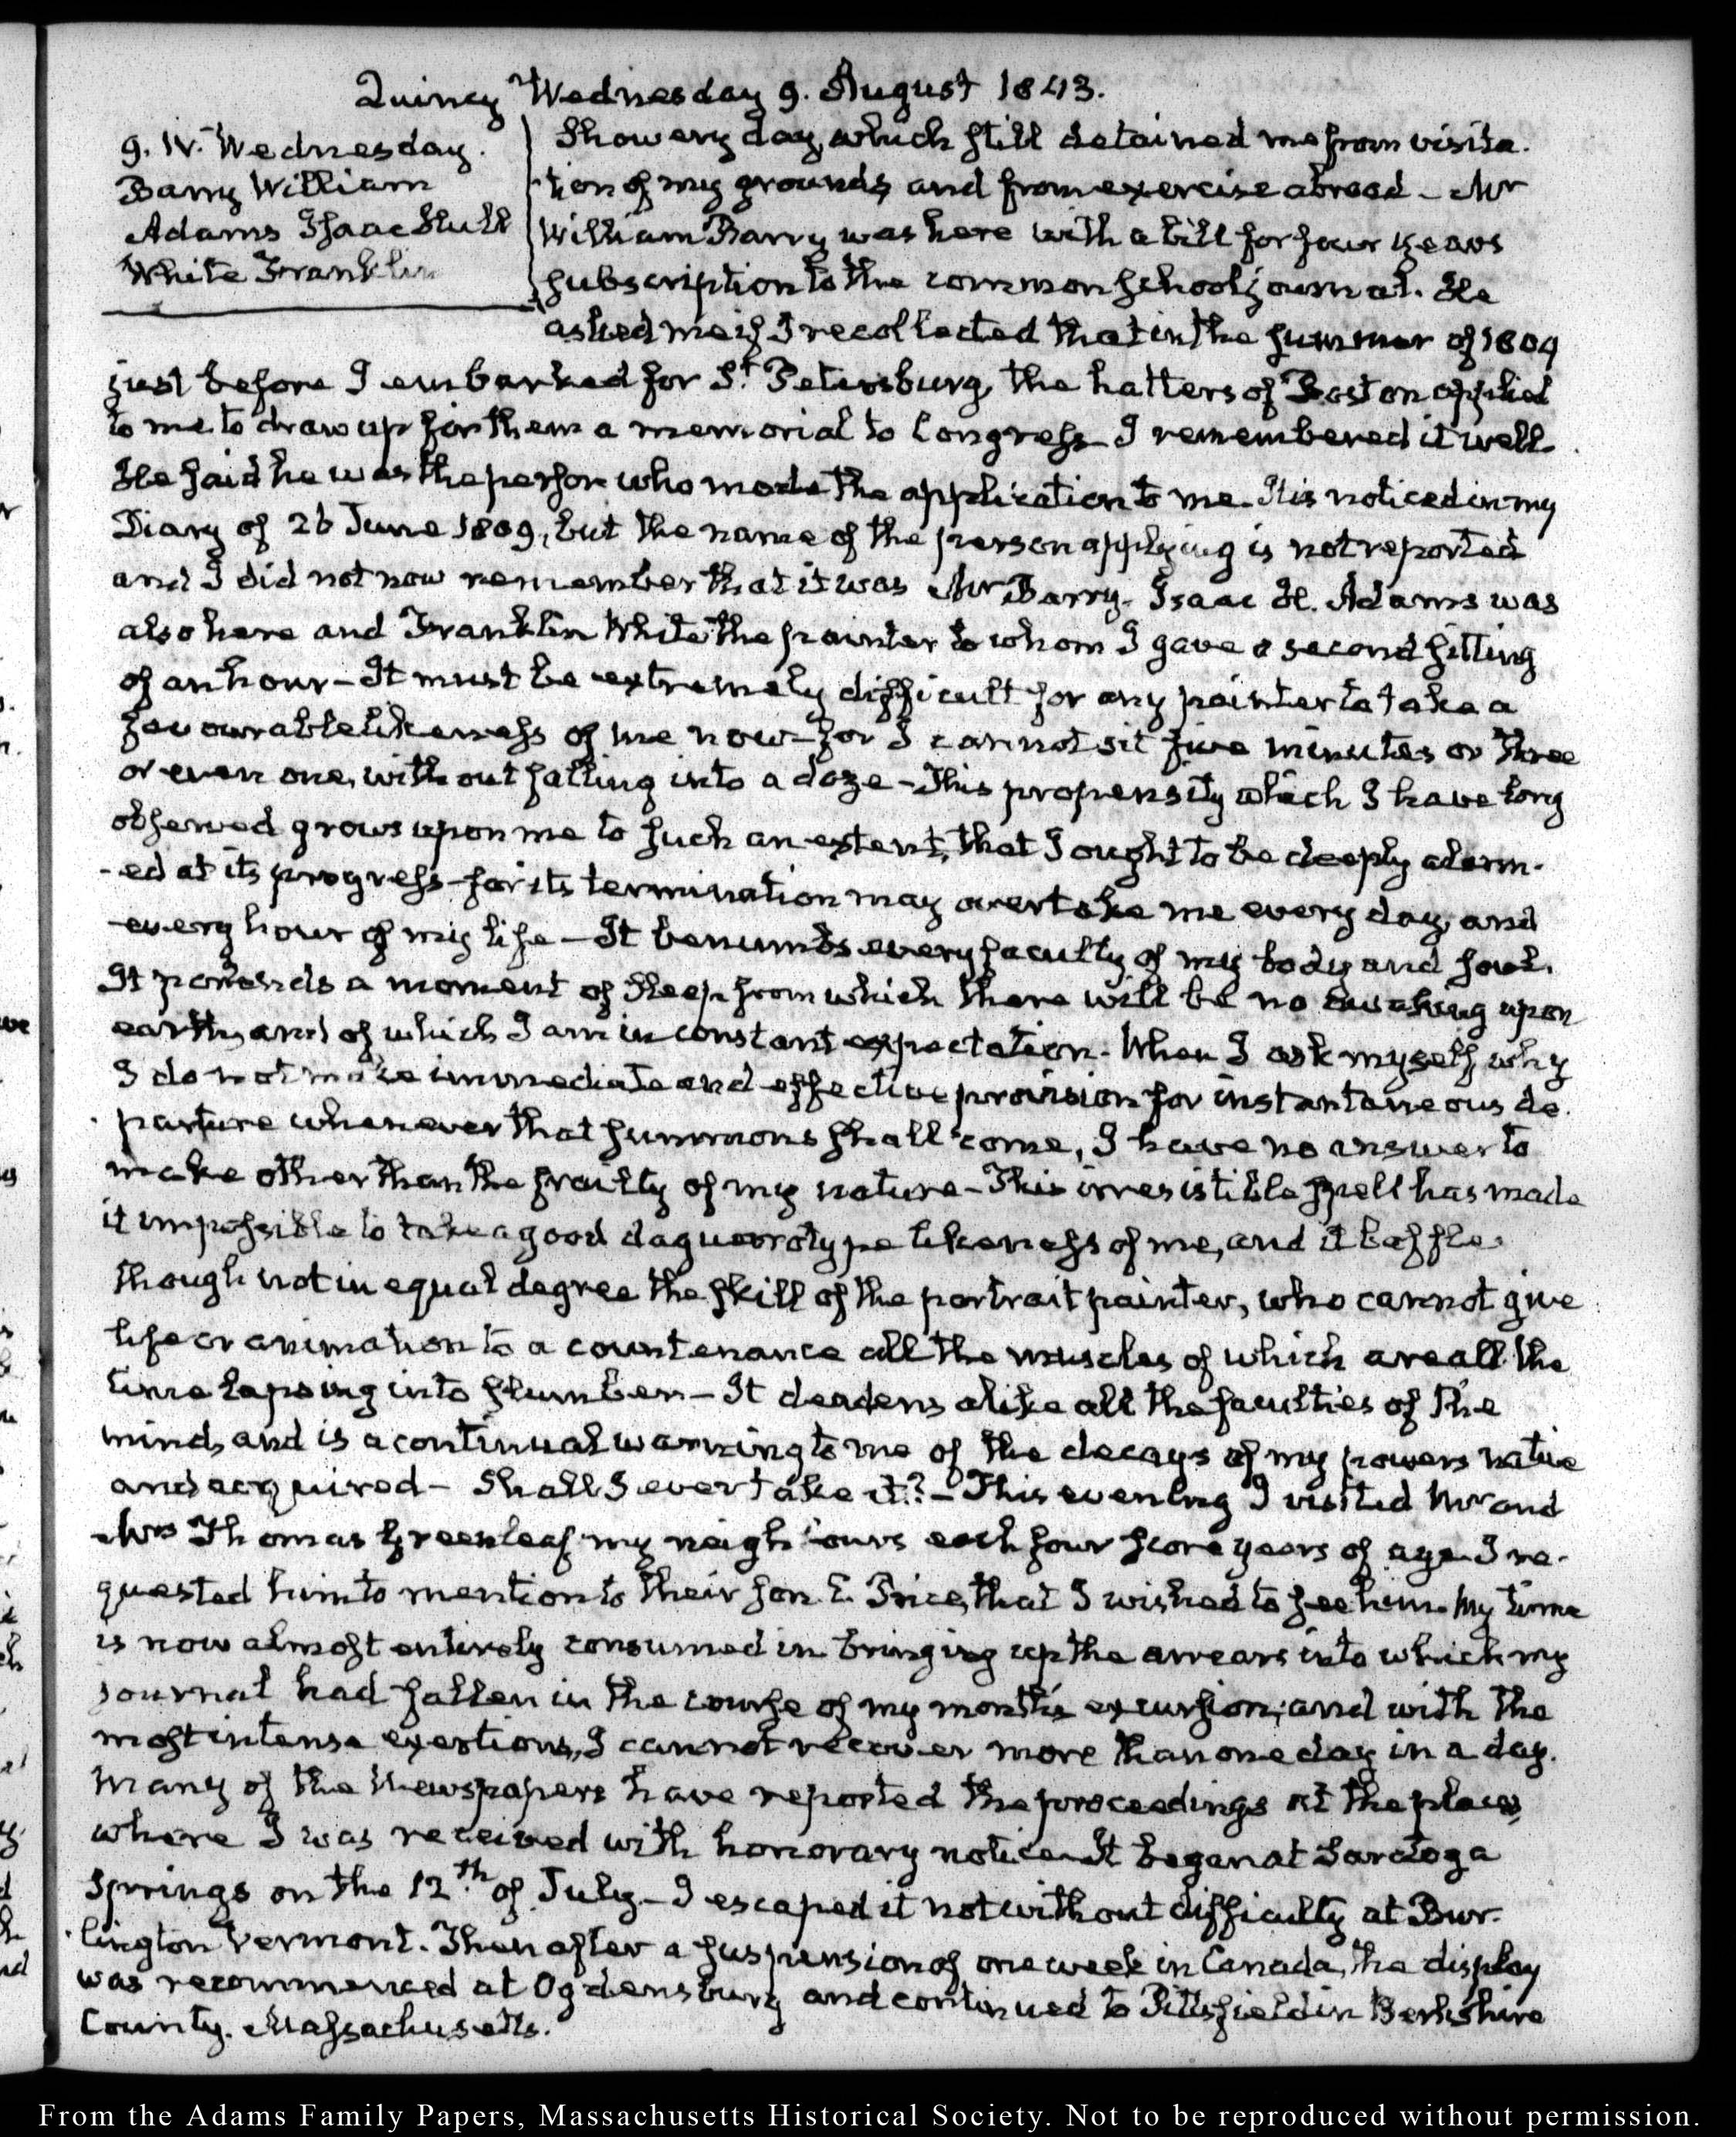 Quincy Wednesday 9. August 1843.
9. IV. Wednesday.
Barry William
Adams Isaac Hull
White Franklin
Showery day, which still detained me from visita-
tion of my grounds and from exercise abroad – Mr
William Barry was here with a bill for four years
subscription to the common school journal. He
asked me if I recollected that in the summer of 1809
just before I embarked for St. Petersburg, the hatters of Boston applied
to me to draw up for them a memorial to Congress – I remembered it well.
He said he was the person who made the application to me. It is noticed in my
Diary of 26 June 1809, but the name of the person applying is not reported
and I did not now remember that it was Mr Barry. Isaac H. Adams was
also here and Franklin White the painter to whom I gave a second sitting
of an hour – It must be extremely difficult for any painter to take a
favourable likeness of me now – for I cannot sit five minutes or three
or even one, without falling into a doze – This propensity which I have long
observed grows upon me to such an extent, that I ought to be deeply alarm-
-ed at its progress – for its termination may overtake me every day, and
every hour of my life – It benumbs every faculty of my body and soul.
It portends a moment of sleep from which there will be no awaking upon
earth, and of which I am in constant expectation. When I ask myself why
I do not make immediate and effective provision for instantaneous de-
parture whenever that summons shall come, I have no answer to
make other than the frailty of my nature – This irresistible spell has made
it impossible to take a good daguerrotype likeness of me, and it baffles
though not in equal degree the skill of the portrait painter, who cannot give
life or animation to a countenance all the muscles of which are all the
time lapsing into slumber – It deadens alike all the faculties of the
mind, and is a continual warning to me of the decays of my powers native
and acquired – Shall I ever take it? – This evening I visited Mr and
Mrs Thomas Greenleaf my neighbours each four score years of age. I re-
quested him to mention to their son E. Price, that I wished to see him. My time
is now almost entirely consumed in bringing up the arrears into which my
journal had fallen in the course of my month's excursion; and with the
most intense exertions, I cannot recover more than one day in a day.
Many of the Newspapers have reported the proceedings at the places
where I was received with honorary notice. It began at Saratoga
Springs on the 12th of July – I escaped it not without difficulty at Bur-
lington Vermont. Then after a suspension of one week in Canada, the display
was recommenced at Ogdensburg and continued to Pittsfield in Berkshire
County. Massachusetts.
From the Adams Family Papers, Massachusetts Historical Society. Not to be reproduced without permission.